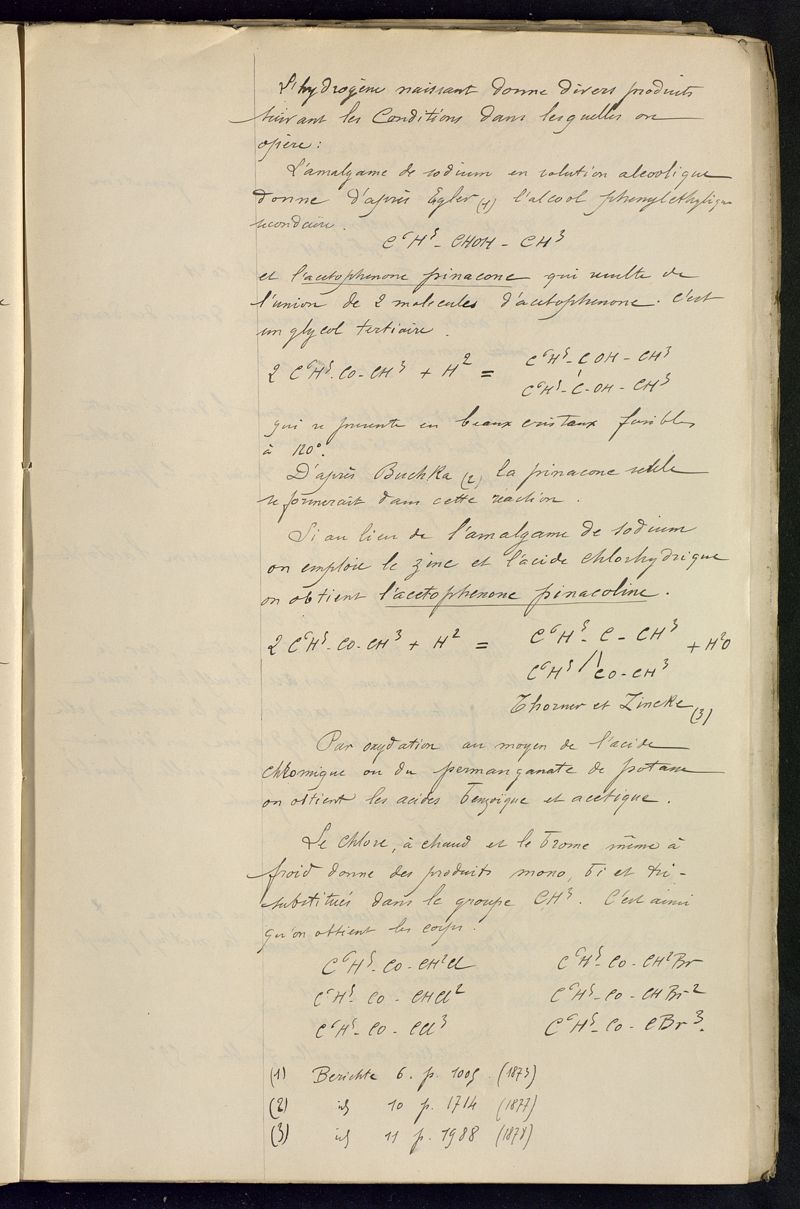 L'hydrogène naissant donne divers produits
suivant les Conditions dans lesquelles on
opère :
L'amalgame de sodium en solution alcoolique
donne d'après Egler (1) l'alcool phenylethylique
secondaire.
C⁶H⁵ - CHOH - CH³
et l'acetophenone pinacone qui resulte de
l'union de 2 molecules d'acetophenone. C'est
un glycol tertiaire.
2 C⁶H⁵-CO-CH³ + H² = C⁶H⁵-COH-CH³
C⁶H⁵-C-OH-CH³
qui se presente en beaux cristaux fusibles
à 120°.
D'après Buchka (2) la pinacone seule
se formerait dans cette réaction.
Si au lieu de l'amalgame de sodium
on emploie le zinc et l'acide chlorhydrique
on obtient l'acetophenone pinacoline.
2 C⁶H⁵-CO-CH³ + H² = C⁶H⁵-C-CH³ + H²O
C⁶H⁵ // CO-CH³
Thorner et Zincke (3)
Par oxydation au moyen de l'acide
chromique ou du permanganate de potasse
on obtient les acides benzoïque et acetique.
Le chlore, à chaud et le brome même à
froid donne des produits mono, bi et tri-
substitués dans le groupe CH³. C'est ainsi
qu'on obtient les corps.
C⁶H⁵-CO-CH²Cl C⁶H⁵-CO-CH²Br
C⁶H⁵-CO-CHCl² C⁶H⁵-CO-CHBr²
C⁶H⁵-CO-CCl³ C⁶H⁵-CO-CBr³.
(1) Berichte 6. p. 1005 (1873)
(2) id 10 p. 1714 (1877)
(3) id 11 p. 1988 (1878)